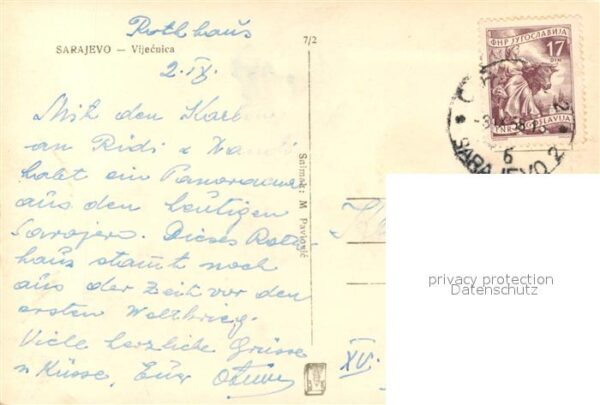 Rothhaus
7/2
SARAJEVO — Vijećnica
2.IX.
Mit den Karten
an Ridi &
habt ein Panorama
aus den heutigen
Sarajevo. Dieses Rath-
haus stammt noch
aus der Zeit vor den
ersten Weltkrieg.
Viele herzliche Grüsse
u Küsse, Euer
Snimak: M Pavlović
XV.
ФНР ЈУГОСЛАВИЈА
17
DIN
FNR JUGOSLAVIJA
6
SARAJEVO 2
privacy protection
Datenschutz